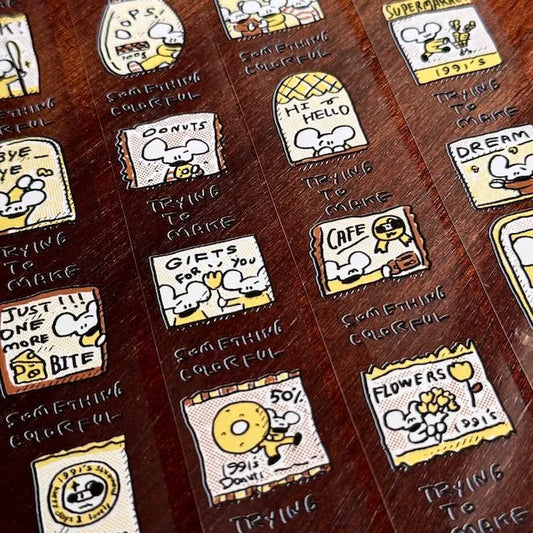 SOMETHING
COLORFUL
BYE
YE
TRYING
TO
MAKE
JUST!!!
ONE
MORE
BITE
SOMETHING
COLORFUL
1991's
OPS!
SOMETHING
COLORFUL
DONUTS
TRYING
TO
MAKE
GIFTS
FOR YOU
SOMETHING
COLORFUL
50%
1991's
DONUTS
TRYING
SOMETHING
COLORFUL
HI
HELLO
TRYING
TO
MAKE
CAFE
SOMETHING
COLORFUL
FLOWERS
1991's
TRYING
TO
MAKE
SUPERMARKET
1991's
TRYING
TO
MAKE
DREAM